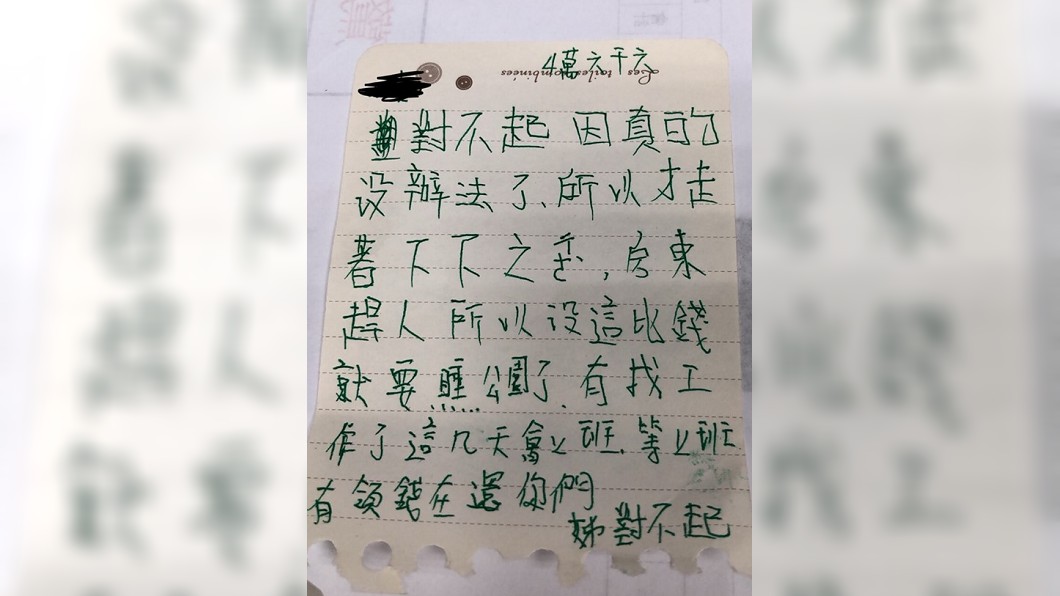 4萬六千六
Les tailes combinées
對不起 因真的
没辦法了、所以才走
著下下之丕,房東
趕人所以没這比錢
就要睡公園了.有找工
作了這几天會上班.等上班
有领錢在還你們
姊對不起